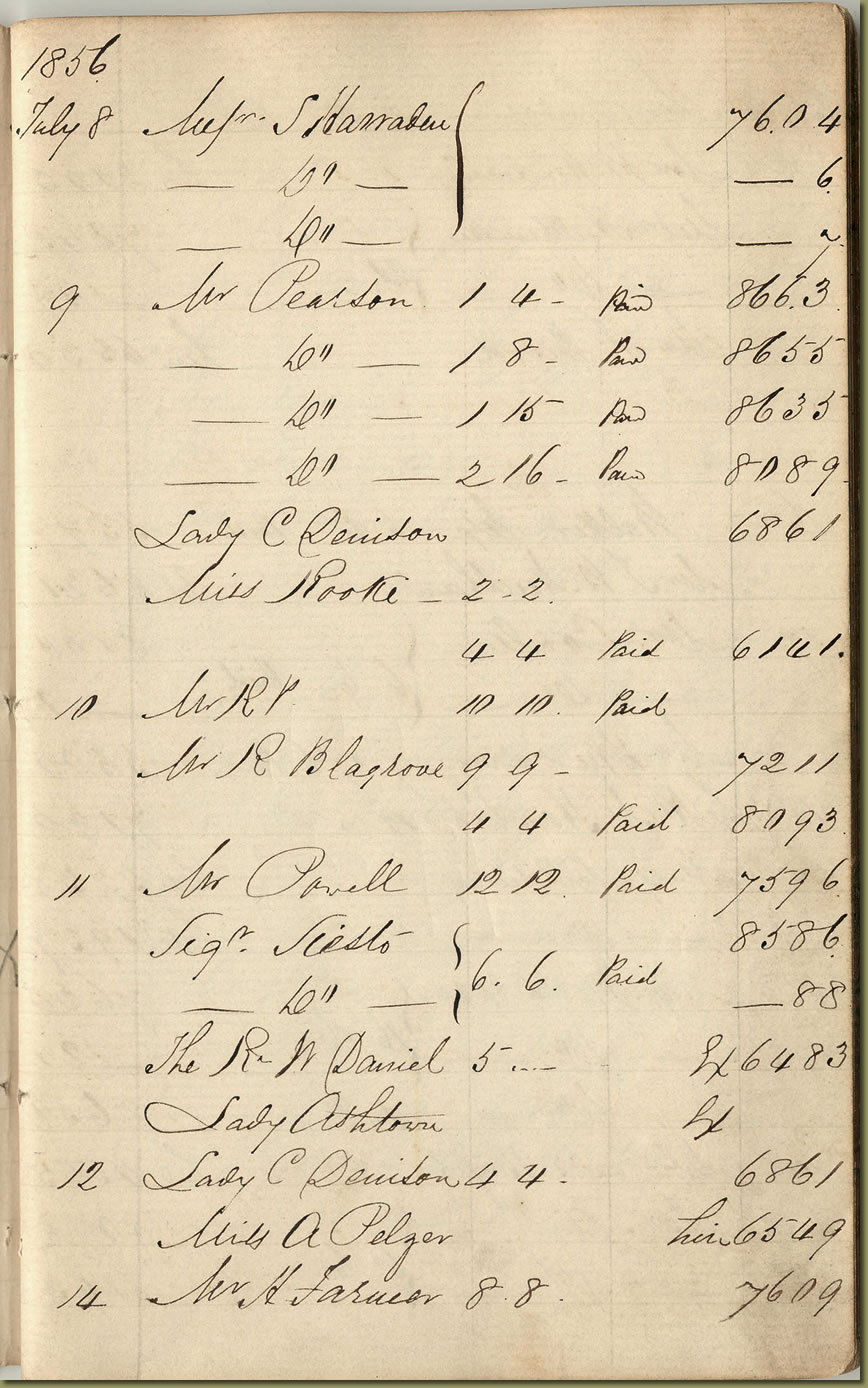 1856
July 8 Messrs. S Harraden 7604
— Do — — 6
— Do — — 7
9 Mr Pearson 1 4 - Paid 8663
— Do — 1 8 - Paid 8655
— Do — 1 15 Paid 8635
— Do — 2 16 - Paid 8089
Lady C Denison 6861
Miss Rooke - 2 - 2.
4 4 Paid 6141.
10 Mr R P 10 10. Paid
Mr R Blagrove 9 9 - 7211
4 4 Paid 8093
11 Mr Powell 12 12. Paid 7596
Sigr. 8586
— Do — 6. 6. Paid — 88
The Rn W Daniel 5 .-- Ex 6483
Lady Ashtown Ex
12 Lady C Denison 4 4 - 6861
Miss A Pelzer hire 6549
14 Mr H Farmer 8. 8. 7609